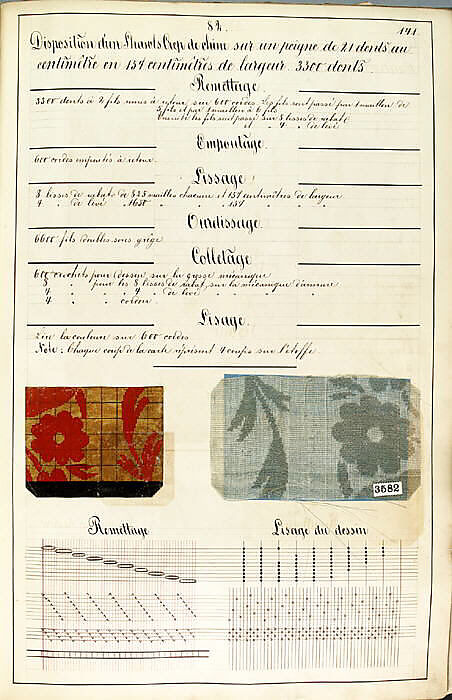 82.
141.
Disposition d'un Shawls Crêp de chine sur un peigne de 21 dents au
centimètre en 157 centimètres de largeur 3300 dents.
Remettage
3300 dents à 2 fils unis à retour sur 600 cordes Les fils sont passé par 1 maillon de
5 fils et par 1 maillon à 6 fils
Ensuite les fils sont passé sur 8 lisses de rabat
et 4 de levé
Empoutage.
600 cordes empoutés à retour.
Lissage
8 lisses de rabats de 825 mailles chacune et 157 centimètres de largeur
4 " de levé " 1650 " " 157 "
Ourdissage
6600 fils doubles soies grège
Colletage
600 crochets pour dessin sur la grosse mécanique
8 " pour les 8 lisses de rabat, sur la mécanique d'armure
4 " " 4 " de levé " "
4 " cordon
Lisage.
Lire la couleur sur 600 cordes
Note: Chaque coup de la carte réprésent 4 coups sur l'étoffe
3582
Remettage
Lisage du dessin